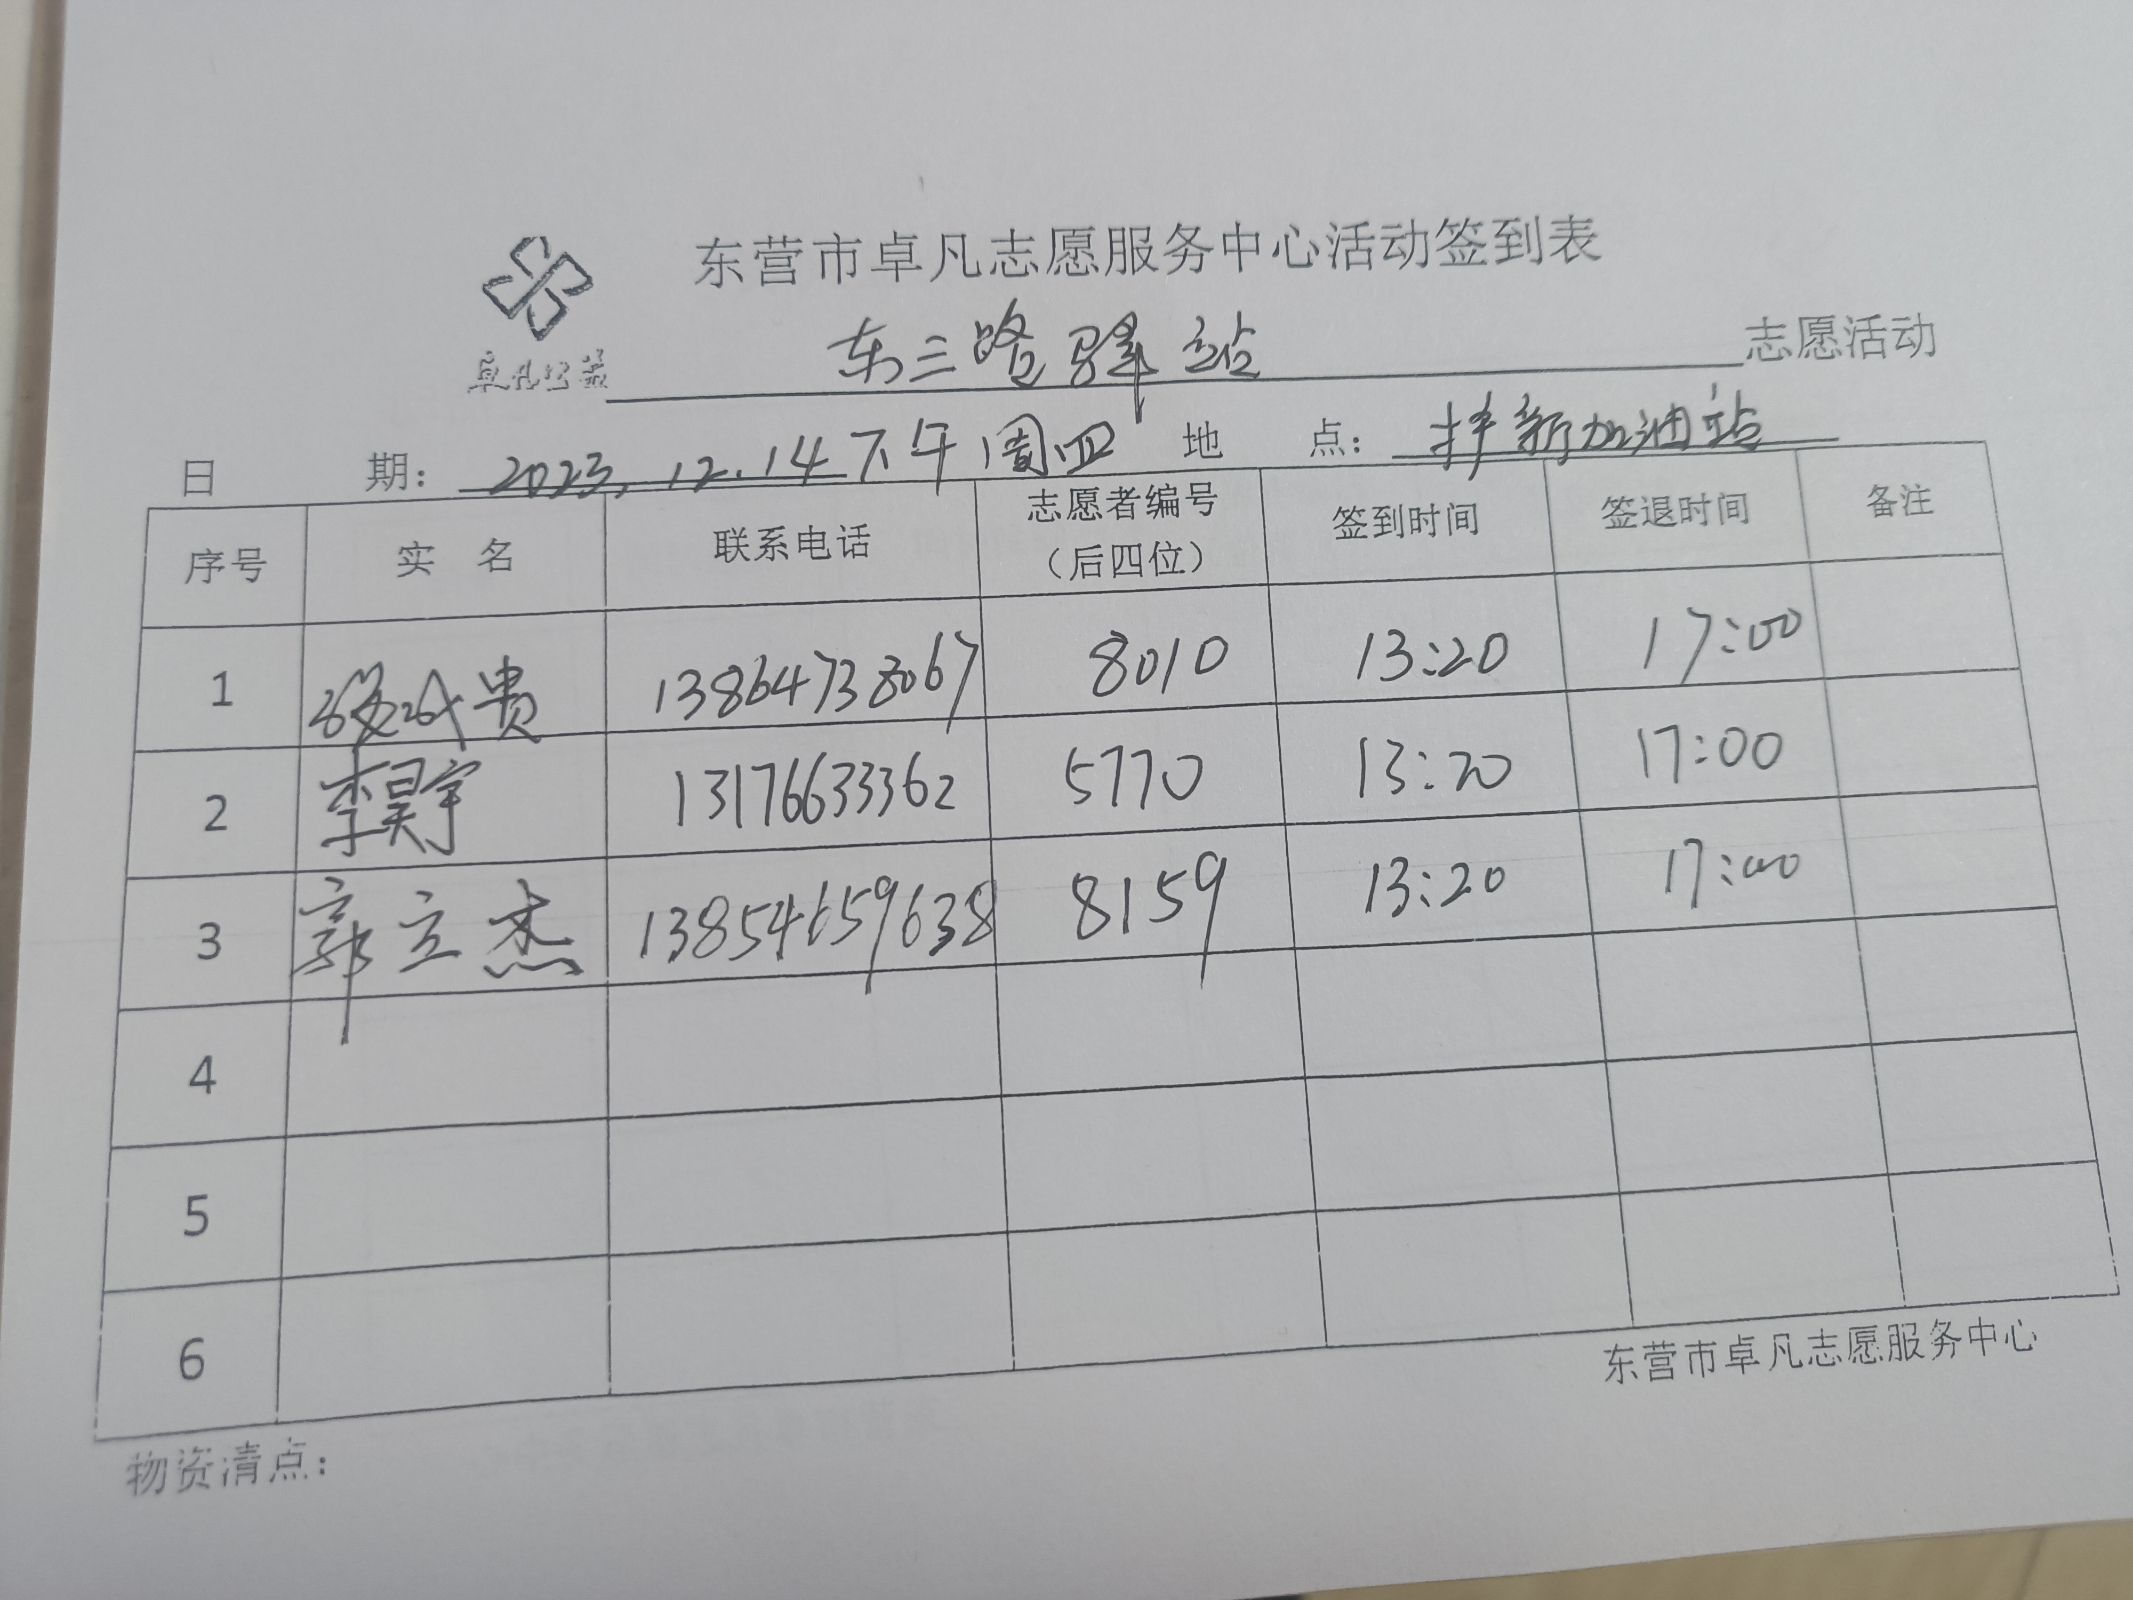 东营市卓凡志愿服务中心活动签到表
卓凡公益
东三路驿站 志愿活动
日 期: 2023.12.14下午周四 地 点: 新加油站
序号 实 名 联系电话 志愿者编号(后四位) 签到时间 签退时间 备注
1 贵 13864738067 8010 13:20 17:00
2 李昊宇 13176633362 5770 13:20 17:00
3 郭立杰 13854659638 8159 13:20 17:00
4
5
6
东营市卓凡志愿服务中心
物资清点: